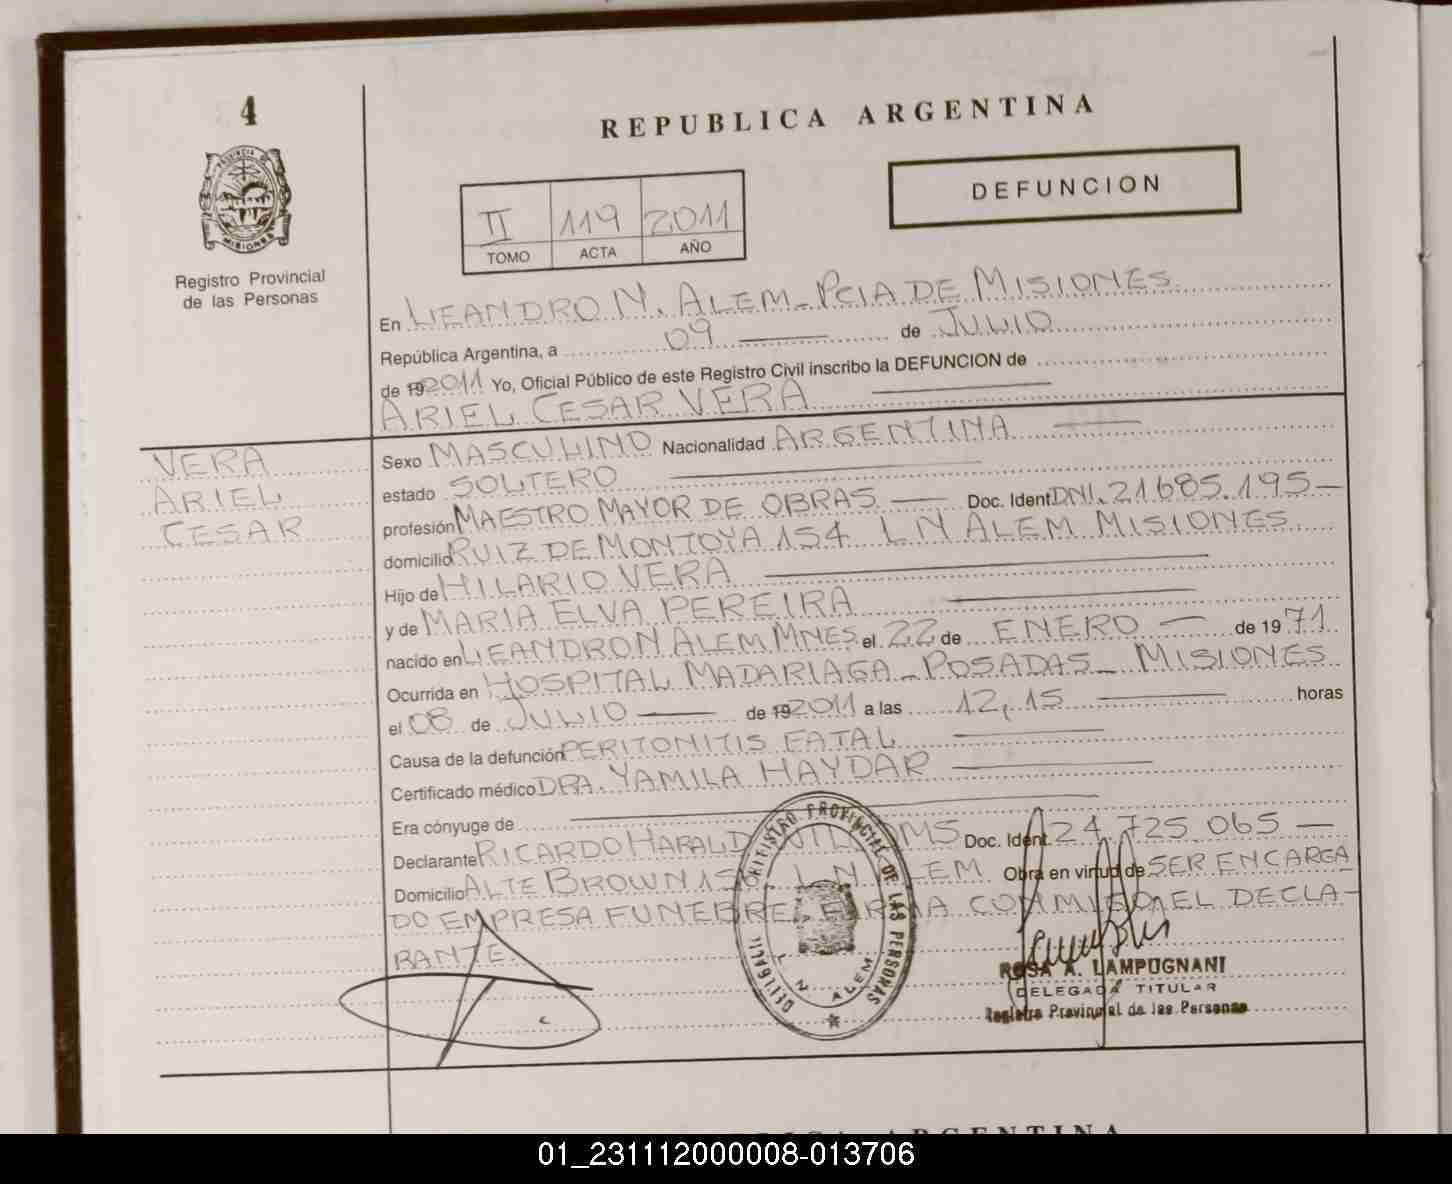 4
PROVINCIA DE
MISIONES
Registro Provincial
de las Personas
REPUBLICA ARGENTINA
DEFUNCION
II 119 2011
TOMO ACTA AÑO
En LEANDRO N. ALEM - PCIA DE MISIONES
República Argentina, a 09 de JULIO
de 192011 Yo, Oficial Público de este Registro Civil inscribo la DEFUNCION de
ARIEL CESAR VERA
VERA
ARIEL
CESAR
Sexo MASCULINO Nacionalidad ARGENTINA
estado SOLTERO
profesión MAESTRO MAYOR DE OBRAS Doc. Ident. DNI. 21.685.195
domicilio RUIZ DE MONTOYA 154 L N ALEM MISIONES
Hijo de HILARIO VERA
y de MARIA ELVA PEREIRA
nacido en LEANDRO N ALEM MNES el 22 de ENERO de 1971
Ocurrida en HOSPITAL MADARIAGA - POSADAS - MISIONES
el 08 de JULIO de 192011 a las 12,15 horas
Causa de la defunción PERITONITIS FATAL
Certificado médico DRA. YAMILA HAYDAR
Era cónyuge de
Declarante RICARDO HARALD Doc. Ident. 24.725.065
Domicilio ALTE BROWN 156 L N ALEM Obra en virtud de SER ENCARGA
DO EMPRESA FUNEBRE. FIRMA CONMIGO EL DECLA-
RANTE.
REGISTRO PROVINCIAL DE LAS PERSONAS
L. N. ALEM
ROSA A. LAMPUGNANI
DELEGADA TITULAR
Registro Provincial de las Personas
REPUBLICA ARGENTINA
01_231112000008-013706